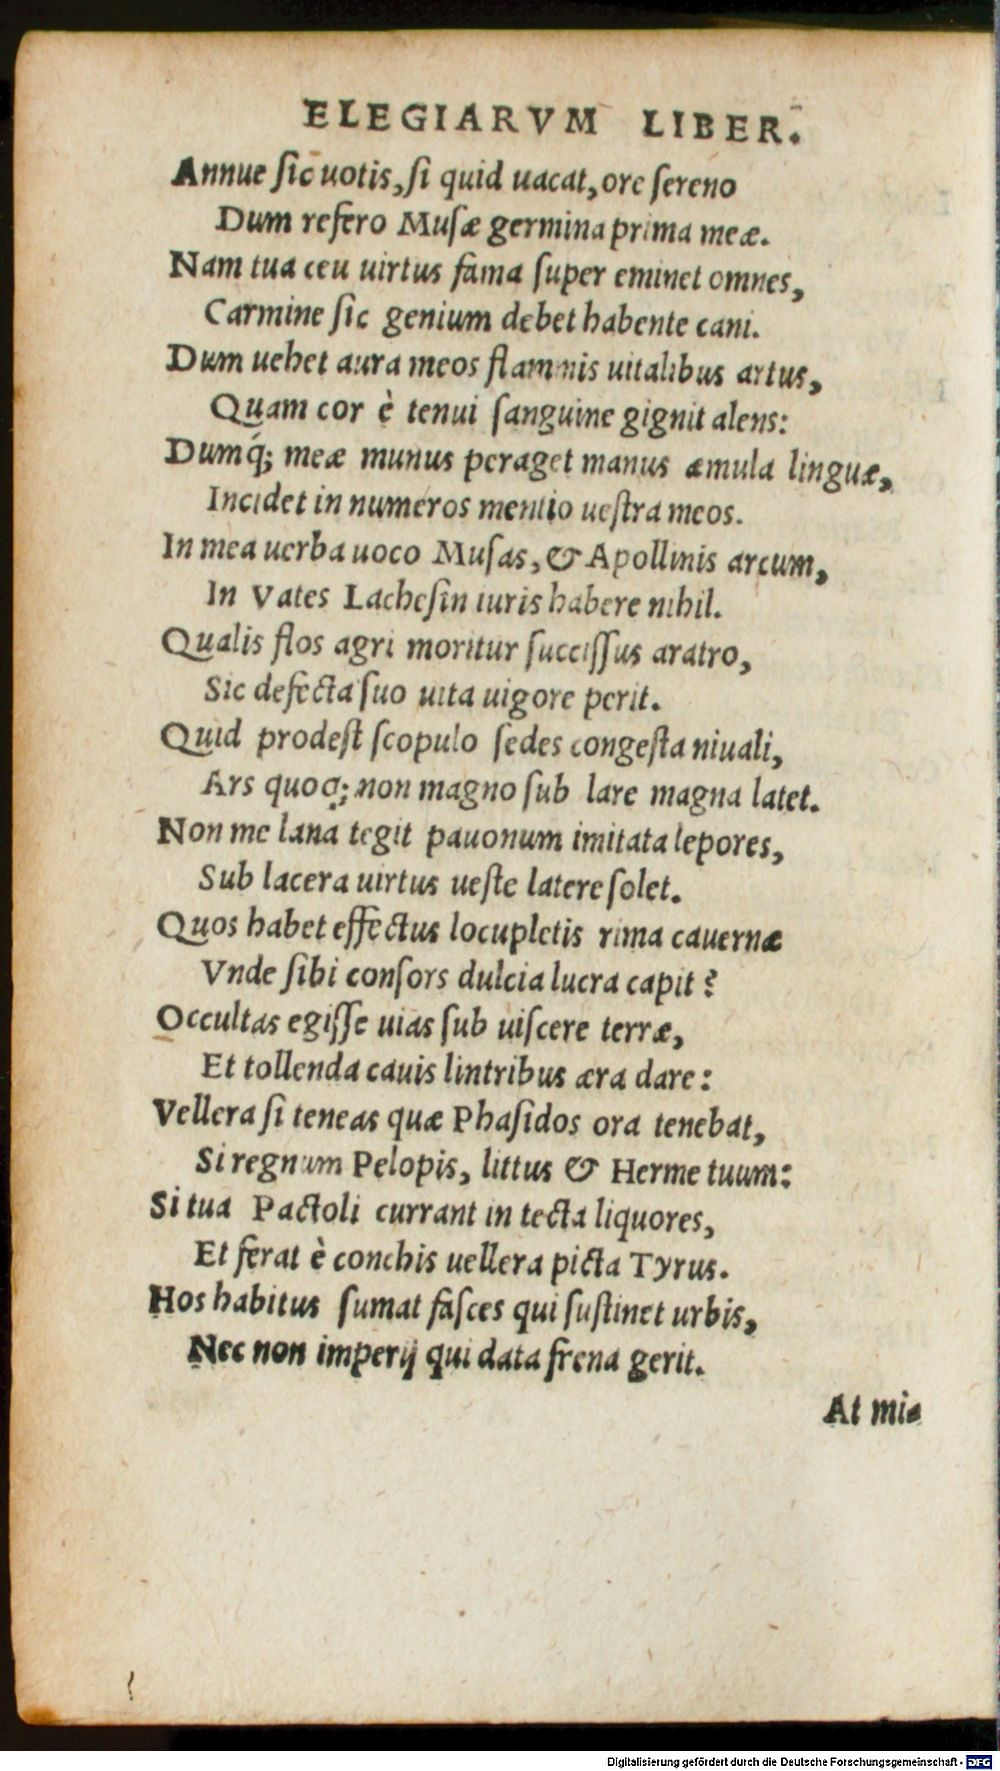 ELEGIARVM LIBER.
Annue ſic uotis, ſi quid uacat, ore ſereno
Dum refero Muſæ germina prima meæ.
Nam tua ceu uirtus fama ſuper eminet omnes,
Carmine ſic genium debet habente cani.
Dum uehet aura meos flaminis uitalibus artus,
Quam cor è tenui ſanguine gignit alens:
Dumq́; meæ munus peraget manus æmula linguæ,
Incidet in numeros mentio ueſtra meos.
In mea uerba uoco Muſas, & Apollinis arcum,
In Vates Lacheſin iuris habere nihil.
Qualis flos agri moritur ſucciſſus aratro,
Sic defecta ſuo uita uigore perit.
Quid prodeſt ſcopulo ſedes congeſta niuali,
Ars quoq; non magno ſub lare magna latet.
Non me lana tegit pauonum imitata lepores,
Sub lacera uirtus ueſte latere ſolet.
Quos habet effectus locupletis rima cauernæ
Vnde ſibi conſors dulcia lucra capit?
Occultas egiſſe uias ſub uiſcere terræ,
Et tollenda cauis lintribus æra dare:
Vellera ſi teneas quæ Phaſidos ora tenebat,
Si regnum Pelopis, littus & Herme tuum:
Si tua Pactoli currant in tecta liquores,
Et ferat è conchis uellera picta Tyrus.
Hos habitus ſumat faſces qui ſuſtinet urbis,
Nec non imperij qui data frena gerit.
At mi-
Digitalisierung gefördert durch die Deutsche Forschungsgemeinschaft - DFG